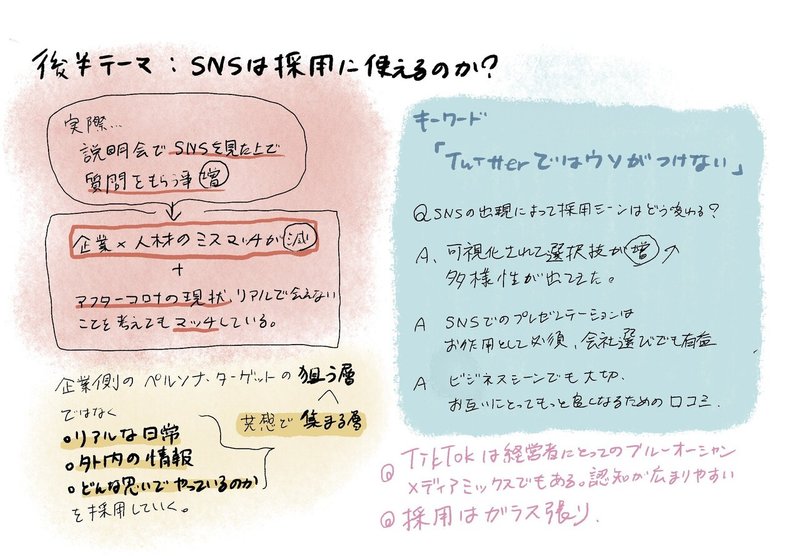 後半テーマ：SNSは採用に使えるのか？
実際…
説明会でSNSを見た上で
質問をもらう事 増
企業×人材のミスマッチが減
+
アフターコロナの現状、リアルで会えない
ことを考えてもマッチしている。
企業側のペルソナ・ターゲットの狙う層
ではなく
共感で集まる層
・リアルな日常
・外内の情報
・どんな思いでやっているのか
を採用していく。
キーワード
「Twitterではウソがつけない」
Q SNSの出現によって採用シーンはどう変わる？
A、可視化されて選択技が増↗
多様性が出てきた。
A SNSでのプレゼンテーションは
お作用として必須、会社選びでも有益
A ビジネスシーンでも大切、
お互いにとってもっと良くなるための口コミ.
◎ TikTokは経営者にとってのブルーオーシャン
×ディアミックスでもある。認知が広まりやすい
◎ 採用はガラス張り.